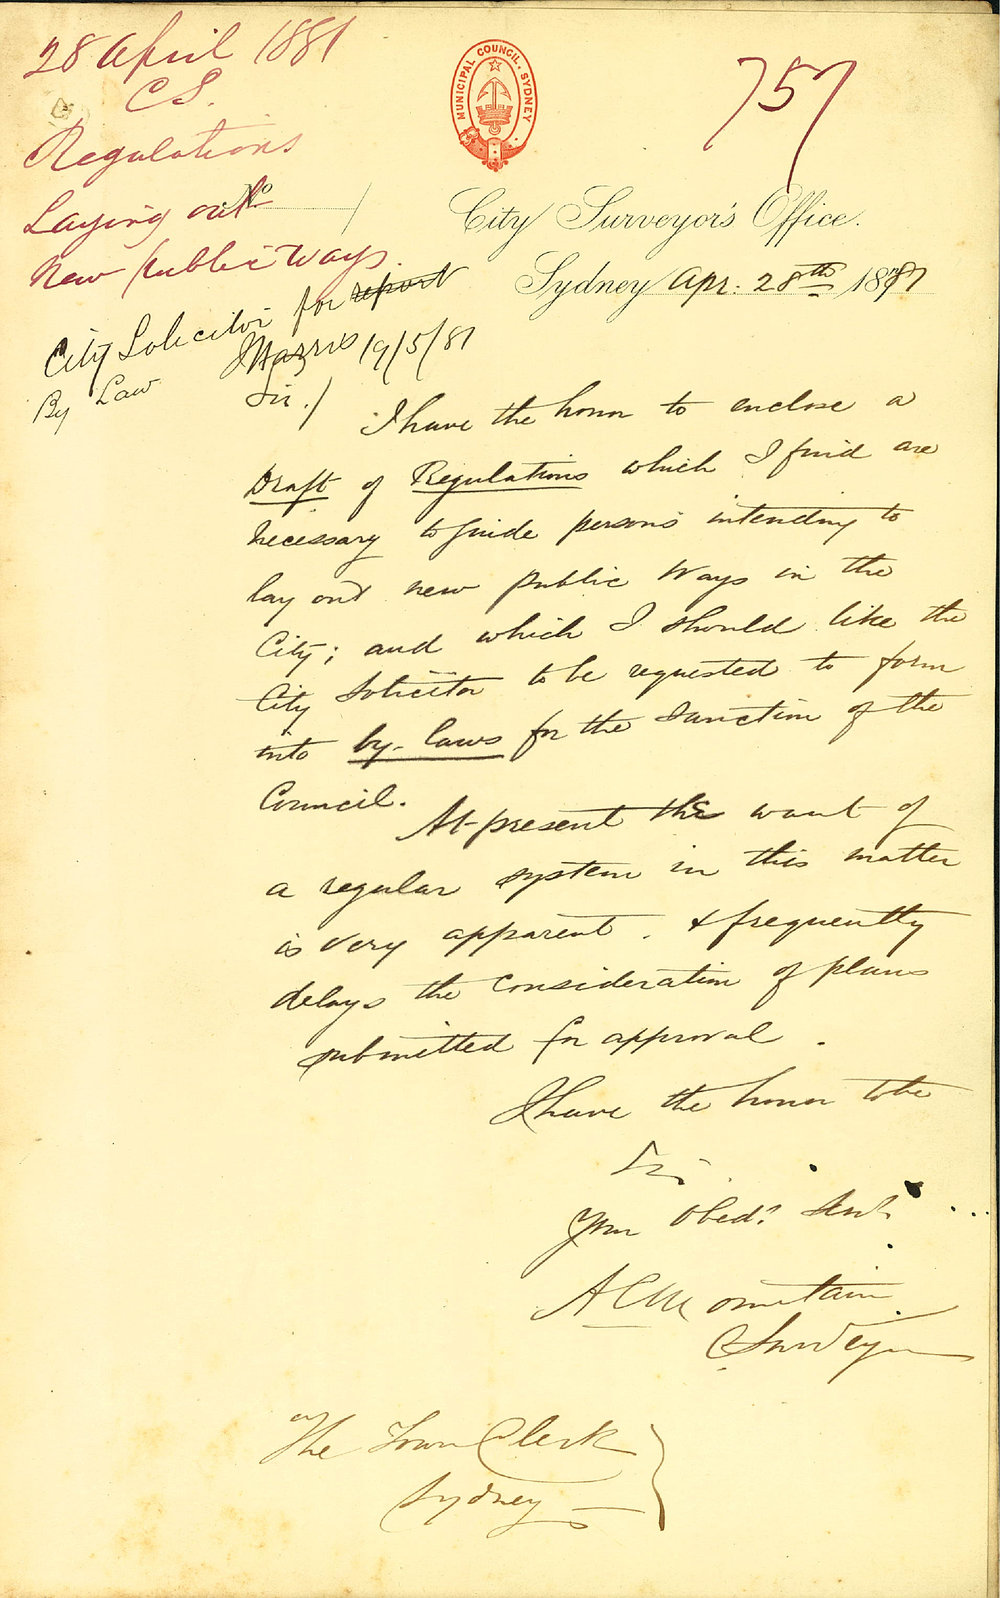 28 April 1881
C S.
Regulations
Laying out
New public Ways.
City Solicitor for report
19/5/81
By Law
MUNICIPAL COUNCIL. SYDNEY
757
No /
City Surveyor's Office.
Sydney Apr. 28th 1881
Sir./ I have the honor to enclose a
Draft of Regulations which I find are
necessary to guide persons intending to
lay out new public Ways in the
City; and which I should like the
City Solicitor to be requested to form
into by-laws for the Sanction of the
Council.
At present the want of
a regular system in this matter
is very apparent. & frequently
delays the consideration of plans
submitted for approval.
I have the honor to be
Sir.
Your Obedt. Servt.
A C Mountain
C Surveyor
The Town Clerk
Sydney